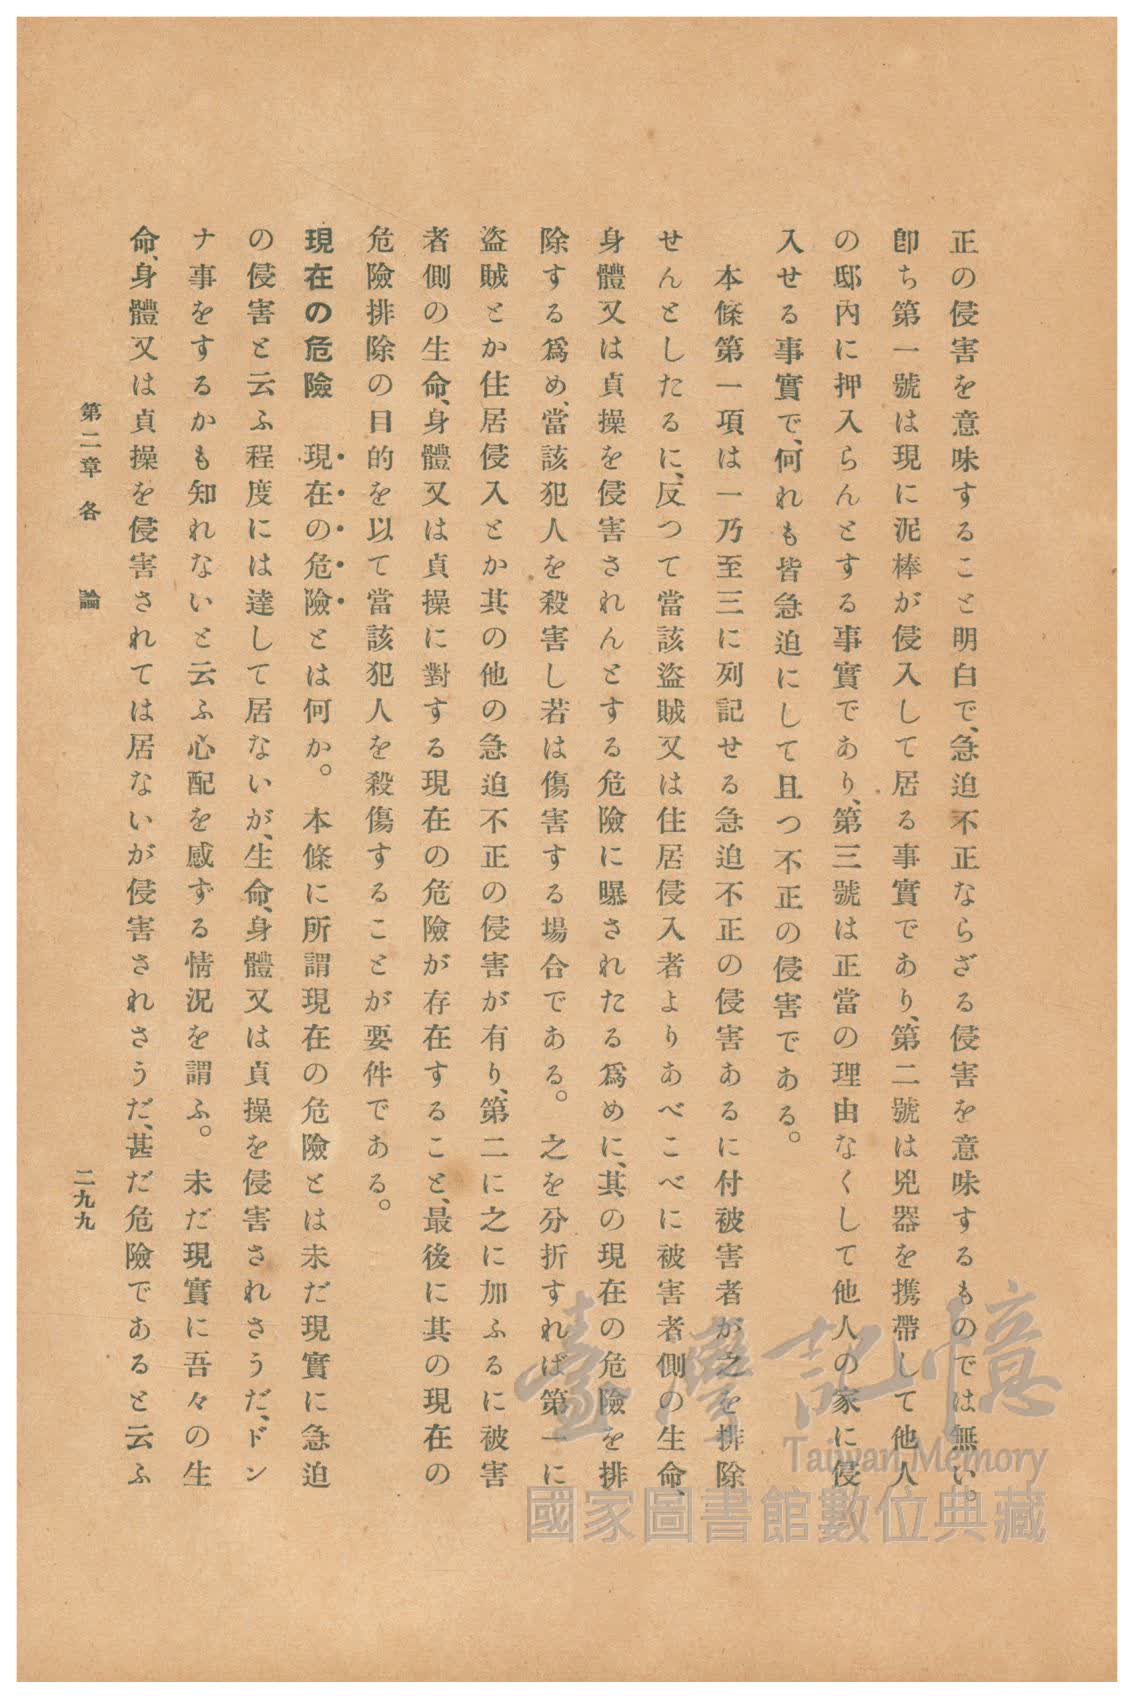 正の侵害を意味すること明白で、急迫不正ならざる侵害を意味するものでは無い。
卽ち第一號は現に泥棒が侵入して居る事實であり、第二號は兇器を携帶して他人
の邸內に押入らんとする事實であり、第三號は正當の理由なくして他人の家に侵
入せる事實で、何れも皆急迫にして且つ不正の侵害である。
本條第一項は一乃至三に列記せる急迫不正の侵害あるに付被害者が之を排除
せんとしたるに、反つて當該盜賊又は住居侵入者よりあべこべに被害者側の生命、
身體又は貞操を侵害されんとする危險に曝されたる爲めに、其の現在の危險を排
除する爲め、當該犯人を殺害し若は傷害する場合である。之を分折すれば第一に
盜賊とか住居侵入とか其の他の急迫不正の侵害が有り、第二に之に加ふるに被害
者側の生命、身體又は貞操に對する現在の危險が存在すること、最後に其の現在の
危險排除の目的を以て當該犯人を殺傷することが要件である。
現在の危險 現在の危險とは何か。本條に所謂現在の危險とは未だ現實に急迫
の侵害と云ふ程度には達して居ないが、生命、身體又は貞操を侵害されさうだ、ドン
ナ事をするかも知れないと云ふ心配を感ずる情況を謂ふ。未だ現實に吾々の生
命、身體又は貞操を侵害されては居ないが侵害されさうだ、甚だ危險であると云ふ
第二章 各 論
二九九
臺灣記憶
Taiwan Memory
國家圖書館數位典藏